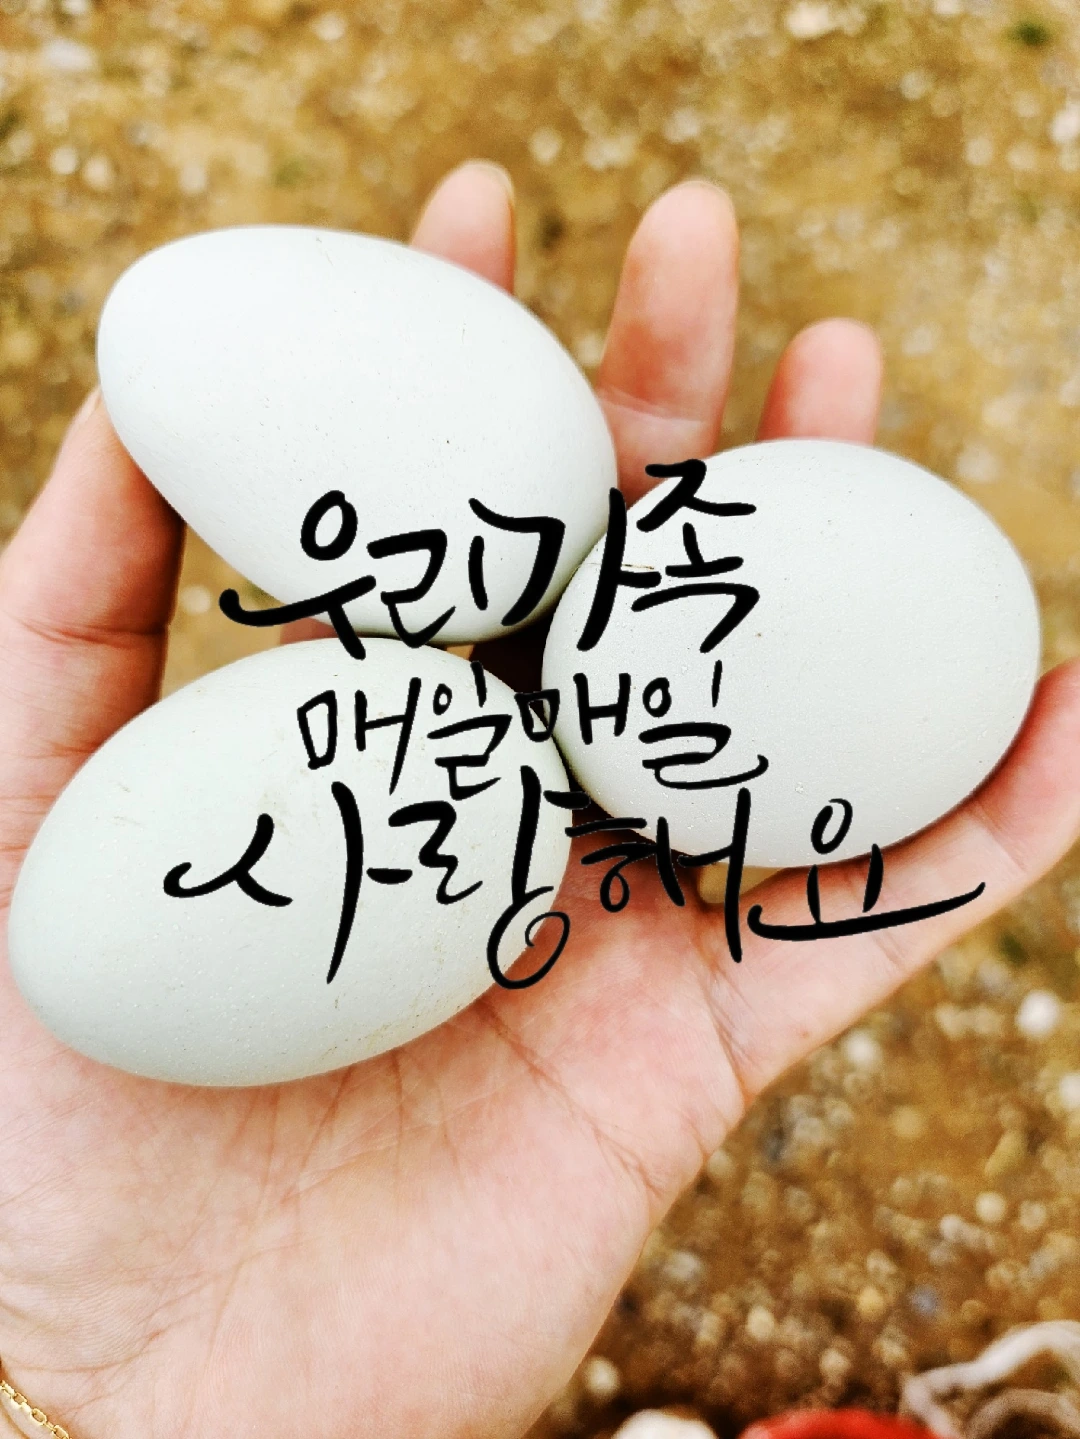 우리가족
매일매일
사랑해요